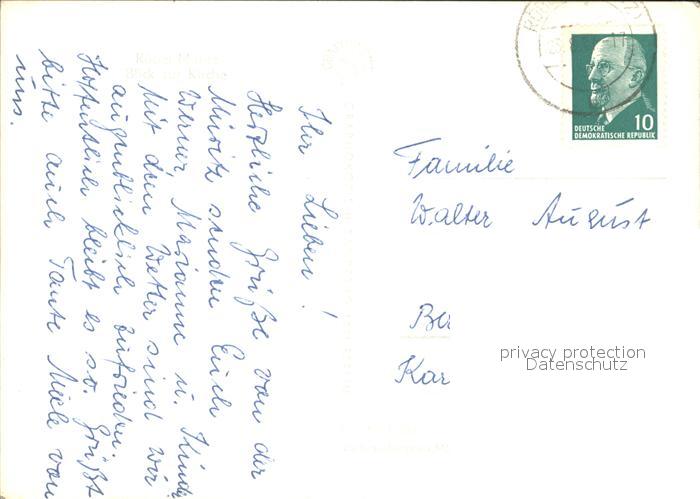 Ihr Lieben!
Herzliche Grüße von der
Müritz senden Euch
Werner, Marianne u. Kinder
Mit dem Wetter sind wir
augenblicklich zufrieden.
Hoffentlich bleibt es so. Grüßt
bitte auch Tante Miele von
uns.
Röbel/Müritz
Blick zur Kirche
10
DEUTSCHE
DEMOKRATISCHE REPUBLIK
Familie
Walter August
Be
Kar
privacy protection
Datenschutz